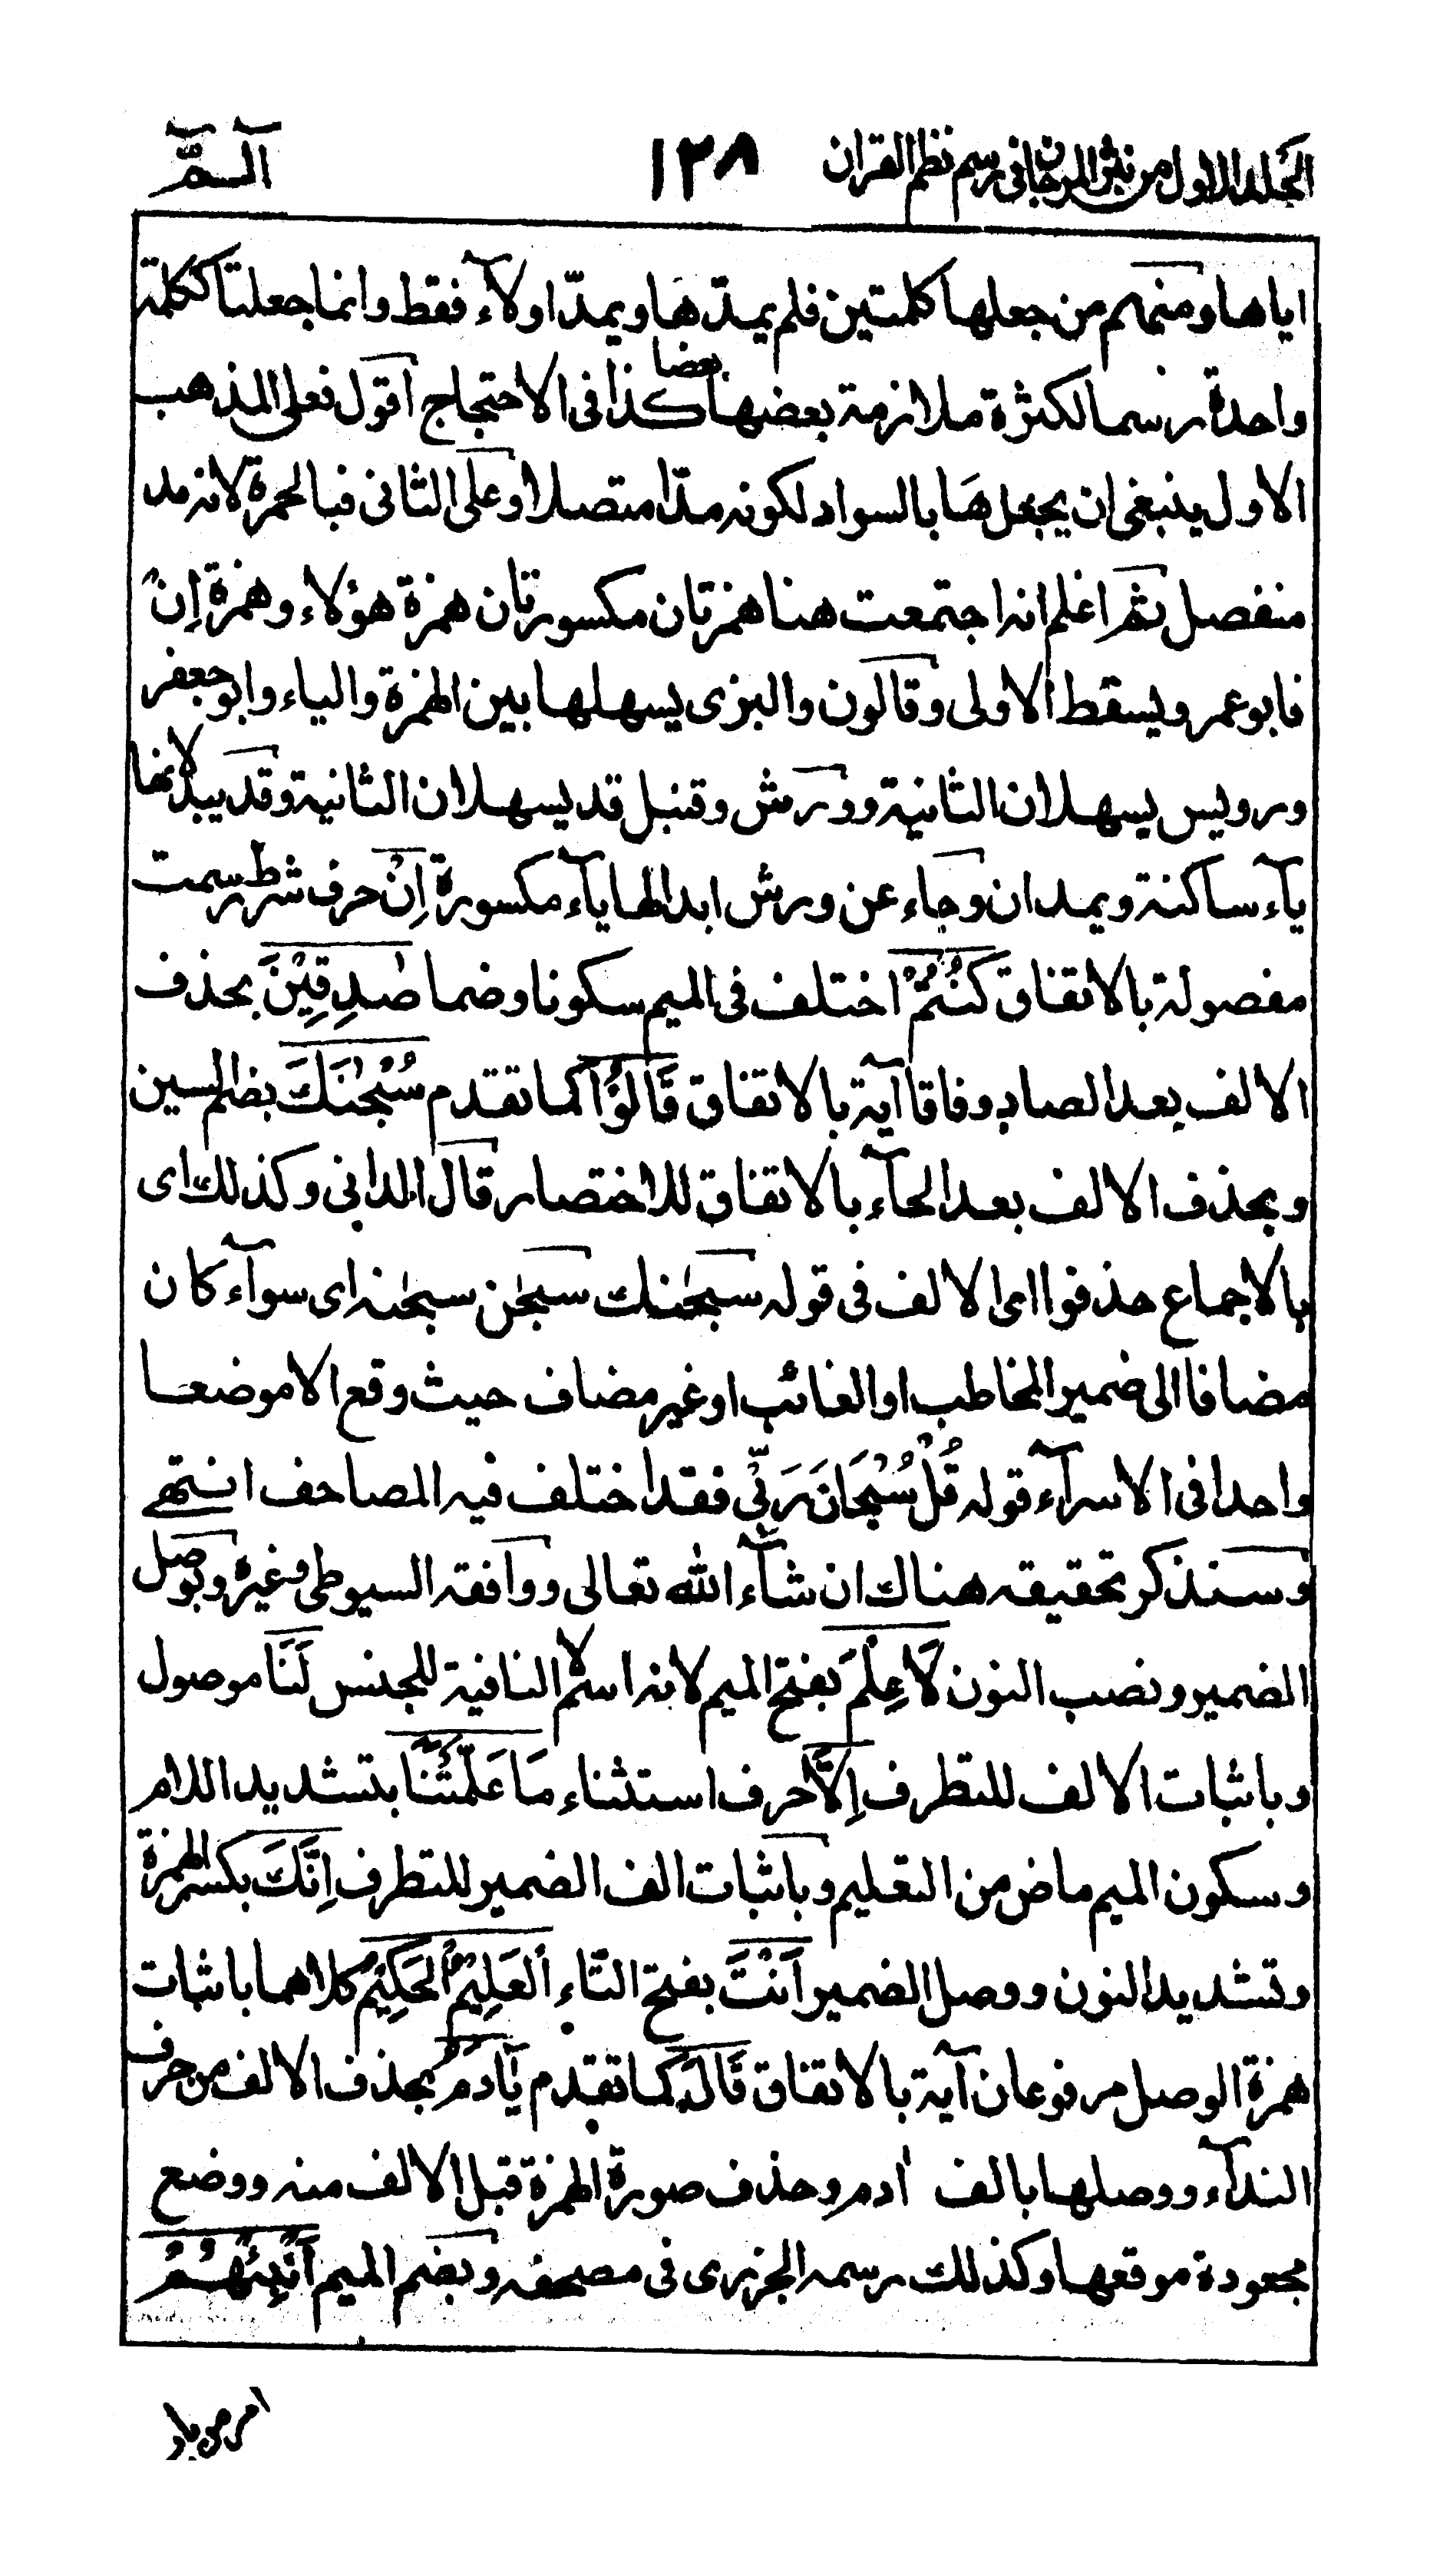 المجلد الاول من نثر المرجان فى رسم نظم القران ١٢٨ الٓمّٓ
اياها ومنهم من جعلها كلمتين فلم يمدّ هَا ويمدّ اولآء فقط وانما جعلتا ككلمة
واحدة رسما لكثرة ملازمة بعضها بعضا كذا فى الاحتجاج اقول فعلى المذهب
الاول ينبغى ان يجعل هَا بالسواد لكونه مدّا متصلا وعلى الثانى فبالحمرة لانه مد
منفصل ثم اعلم انه اجتمعت هنا همزتان مكسورتان همزة هؤلاء وهمزة اِنْ
فابو عمرو يسقط الاولى وقالون والبزى يسهلها بين الهمزة والياء وابو جعفر
ورويس يسهلان الثانية وورش وقنبل قد يسهلان الثانية وقد يبدلانها
يآء ساكنة ويمدان وجاء عن ورش ابدالها يآء مكسورة اِنْ حرف شرط رسمت
مفصولة بالاتفاق كُنْتُمْ اختلف فى الميم سكونا وضما صٰدِقِيْنَ بحذف
الالف بعد الصاد وفاقا آية بالاتفاق قَالُوْٓا كما تقدم سُبْحٰنَكَ بضم السين
وبحذف الالف بعد الحآء بالاتفاق للاختصار قال الدانى وكذلك اى
بالاجماع حذفوا اى الالف فى قوله سبحٰنك سبحٰن سبحٰنه اى سوآء كان
مضافا الى ضمير المخاطب او الغائب او غير مضاف حيث وقع الا موضعا
واحدا فى الاسرآء قوله قُلْ سُبْحَانَ رَبِّىْ فقد اختلف فيه المصاحف انتهے
وسنذكر تحقيقه هناك ان شآء الله تعالى ووافقه السيوطى وغيره وبوصل
الضمير ونصب النون لَا عِلْمَ بفتح الميم لانه اسم لا النافية للجنس لَنَا موصول
وباثبات الالف للتطرف اِلَّا حرف استثناء مَا عَلَّمْتَنَا بتشديد اللام
وسكون الميم ماض من التعليم وباثبات الف الضمير للتطرف اِنَّكَ بكسر الهمزة
وتشديد النون ووصل الضمير اَنْتَ بفتح التاء الْعَلِيْمُ الْحَكِيْمُ كلاهما باثبات
همزة الوصل مرفوعان آية بالاتفاق قَالَ كما تقدم يٰٓاٰدَمُ بحذف الالف من حرف
الندآء ووصلها بالف اٰدم وحذف صورة الهمزة قبل الالف منه ووضع
مجعودة موقعها وكذلك رسمه الجزرى فى مصحفه وبضم الميم اَنْۢبِئْهُمْ
امر من باب